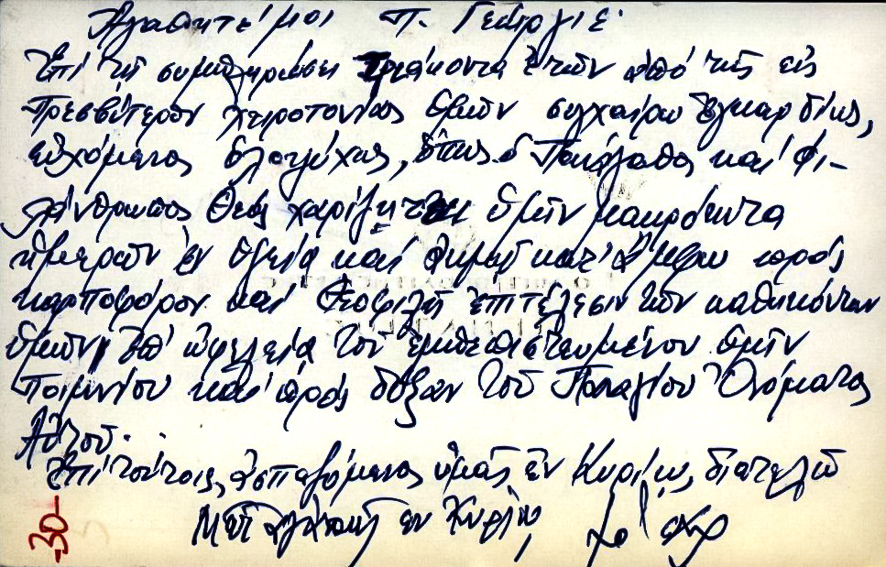 Ἀγαπητέ μοι π. Γεώργιε
Ἐπί τῇ συμπληρώσει τριάκοντα ἐτῶν ἀπό τῆς εἰς
Πρεσβύτερον χειροτονίας ὑμῶν συγχαίρω ἐγκαρδίως,
εὐχόμενος ὁλοψύχως, ὅπως ὁ Πανάγαθος καί Φι-
λάνθρωπος Θεός χαρίζῃ ὑμῖν μακρότητα
ἡμερῶν ἐν ὑγείᾳ καί κατ' ἄμφω πρός
καρποφόρον καί Θεοφιλῆ ἐπιτέλεσιν τῶν καθηκόντων
ὑμῶν, ἐπ' ὠφελείᾳ τοῦ ἐμπεπιστευμένου ὑμῖν
Ποιμνίου καί πρός δόξαν τοῦ Παναγίου Ὀνόματος
Αὐτοῦ.
Ἐπί τούτοις, ἀσπαζόμενος ὑμᾶς ἐν Κυρίῳ, διατελῶ
Μετ' ἀγάπης ἐν Κυρίῳ,
-30-